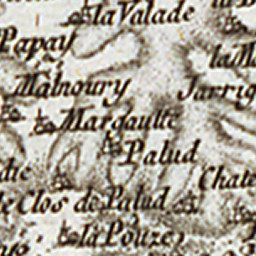 la Valade
Papay
la M
Malnoury
Jarrig
Margautte
Palud
Chate
die
le Clos de Palud
la Pouze